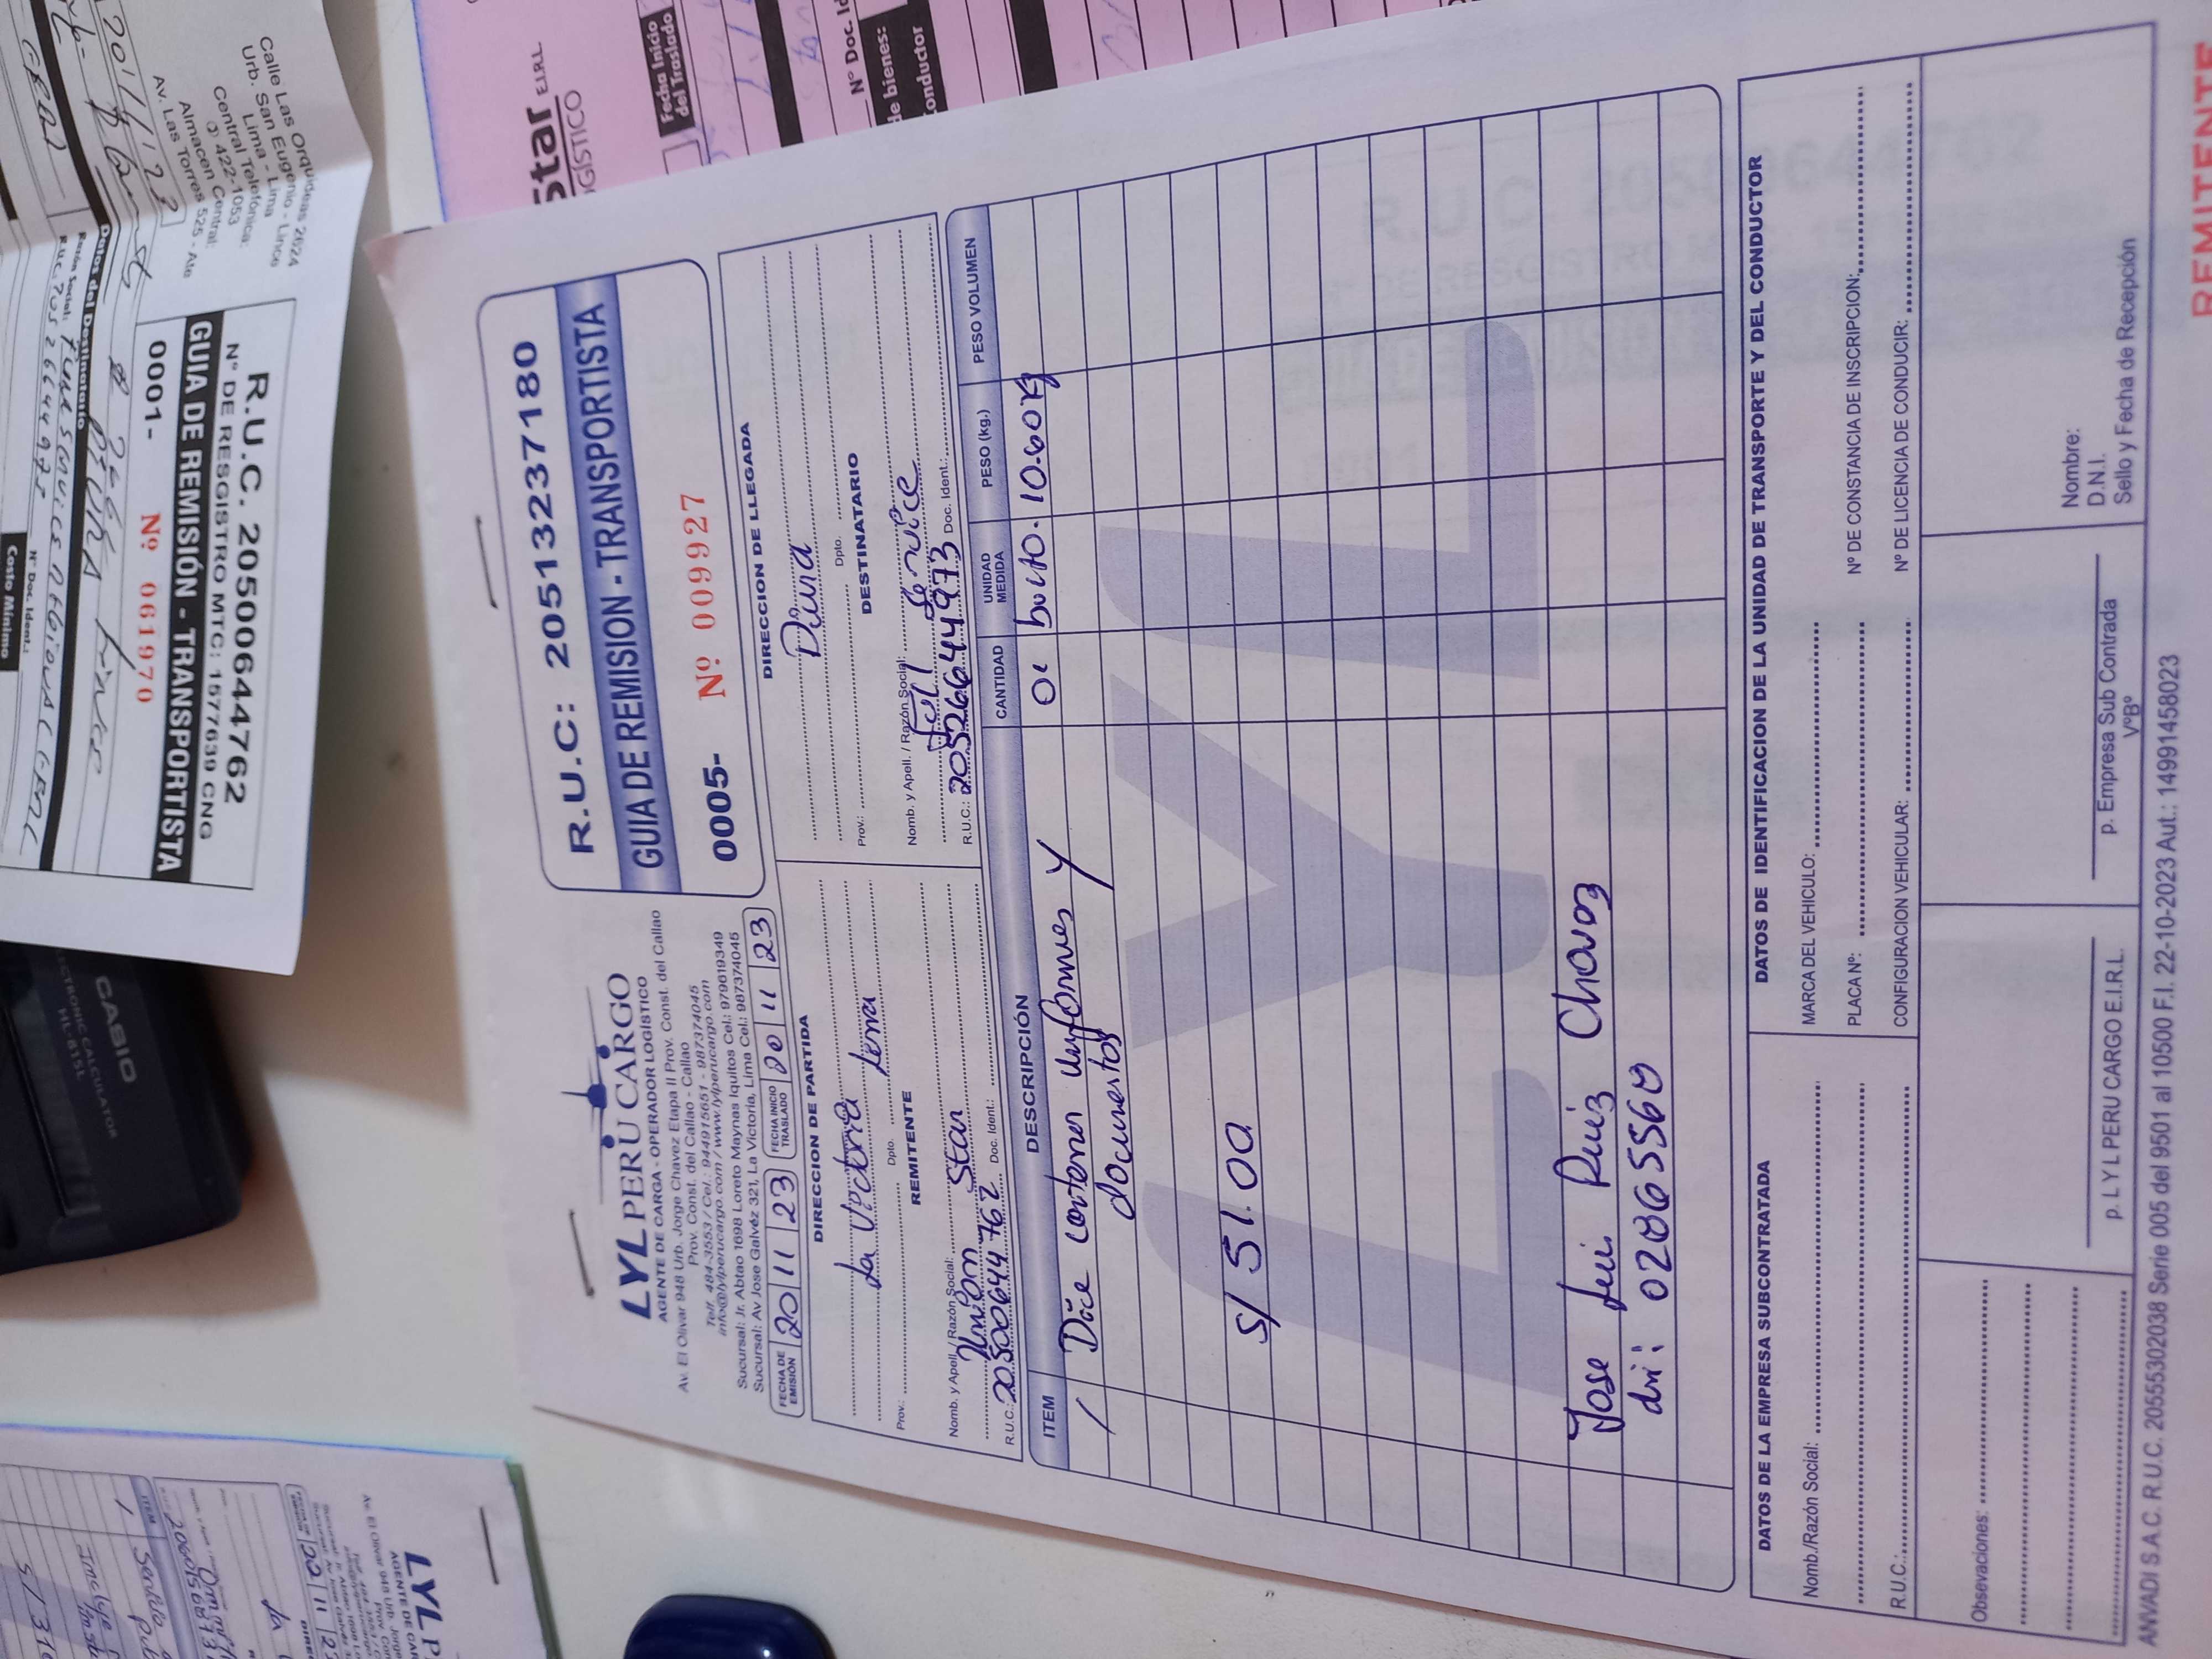 LYL PERU CARGO
AGENTE DE CARGA - OPERADOR LOGÍSTICO
Av. El Olivar 948 Urb. Jorge Chavez Etapa II Prov. Const. del Callao
Prov. Const. del Callao - Callao
Telf. 484-3553 / Cel.: 944915651 - 987374045
info@lylperucargo.com / www.lylperucargo.com
Sucursal: Jr. Abtao 1698 Loreto Maynas Iquitos Cel.: 979619349
Sucursal: Av Jose Galvéz 321, La Victoria, Lima Cel.: 987374045
R.U.C: 20513237180
GUIA DE REMISION - TRANSPORTISTA
0005- Nº 009927
FECHA DE EMISIÓN 20 11 23 FECHA INICIO TRASLADO 20 11 23
DIRECCION DE PARTIDA
La Victoria
Lima
Prov.: Dpto.
DIRECCION DE LLEGADA
Piura
Prov.: Dpto.
REMITENTE
Nomb. y Apell. / Razón Social:
Union Star
R.U.C.: 20500644762 Doc. Ident.:
DESTINATARIO
Nomb. y Apell. / Razón Social:
Full Service
R.U.C.: 20526644973 Doc. Ident.:
ITEM DESCRIPCIÓN CANTIDAD UNIDAD MEDIDA PESO (kg.) PESO VOLUMEN
1 Dice contener uniformes y 01 bulto. 10.60kg
documentos
S/ 51.00
Jose Luis Ruiz Chavez
dni: 02865560
DATOS DE LA EMPRESA SUBCONTRATADA
Nomb./Razón Social:
R.U.C.:
DATOS DE IDENTIFICACION DE LA UNIDAD DE TRANSPORTE Y DEL CONDUCTOR
MARCA DEL VEHICULO:
PLACA Nº: Nº DE CONSTANCIA DE INSCRIPCION:
CONFIGURACION VEHICULAR: Nº DE LICENCIA DE CONDUCIR:
Obsevaciones:
p. L Y L PERU CARGO E.I.R.L.
p. Empresa Sub Contrada
VºBº
Nombre:
D.N.I.
Sello y Fecha de Recepción
ANVADI S.A.C. R.U.C. 20555302038 Serie 005 del 9501 al 10500 F.I. 22-10-2023 Aut.: 14991458023
REMITENTE
R.U.C. 20500644762
Nº DE RESGISTRO MTC: 1577639 CNG
GUIA DE REMISIÓN - TRANSPORTISTA
0001- Nº 061970
Calle Las Orquídeas 2624
Urb. San Eugenio - Lince
Lima - Lima
Central Telefónica:
422-1053
Almacen Central:
Av. Las Torres 525 - Ate
Datos del Destinatario
Razón Social:
R.U.C.: 20526644973
Nº Doc. Ident.:
Costo Mínimo
CASIO
ELECTRONIC CALCULATOR
HL-815L
Star E.I.R.L.
Fecha Inicio
del Traslado
Nº Doc.
de bienes:
LYL